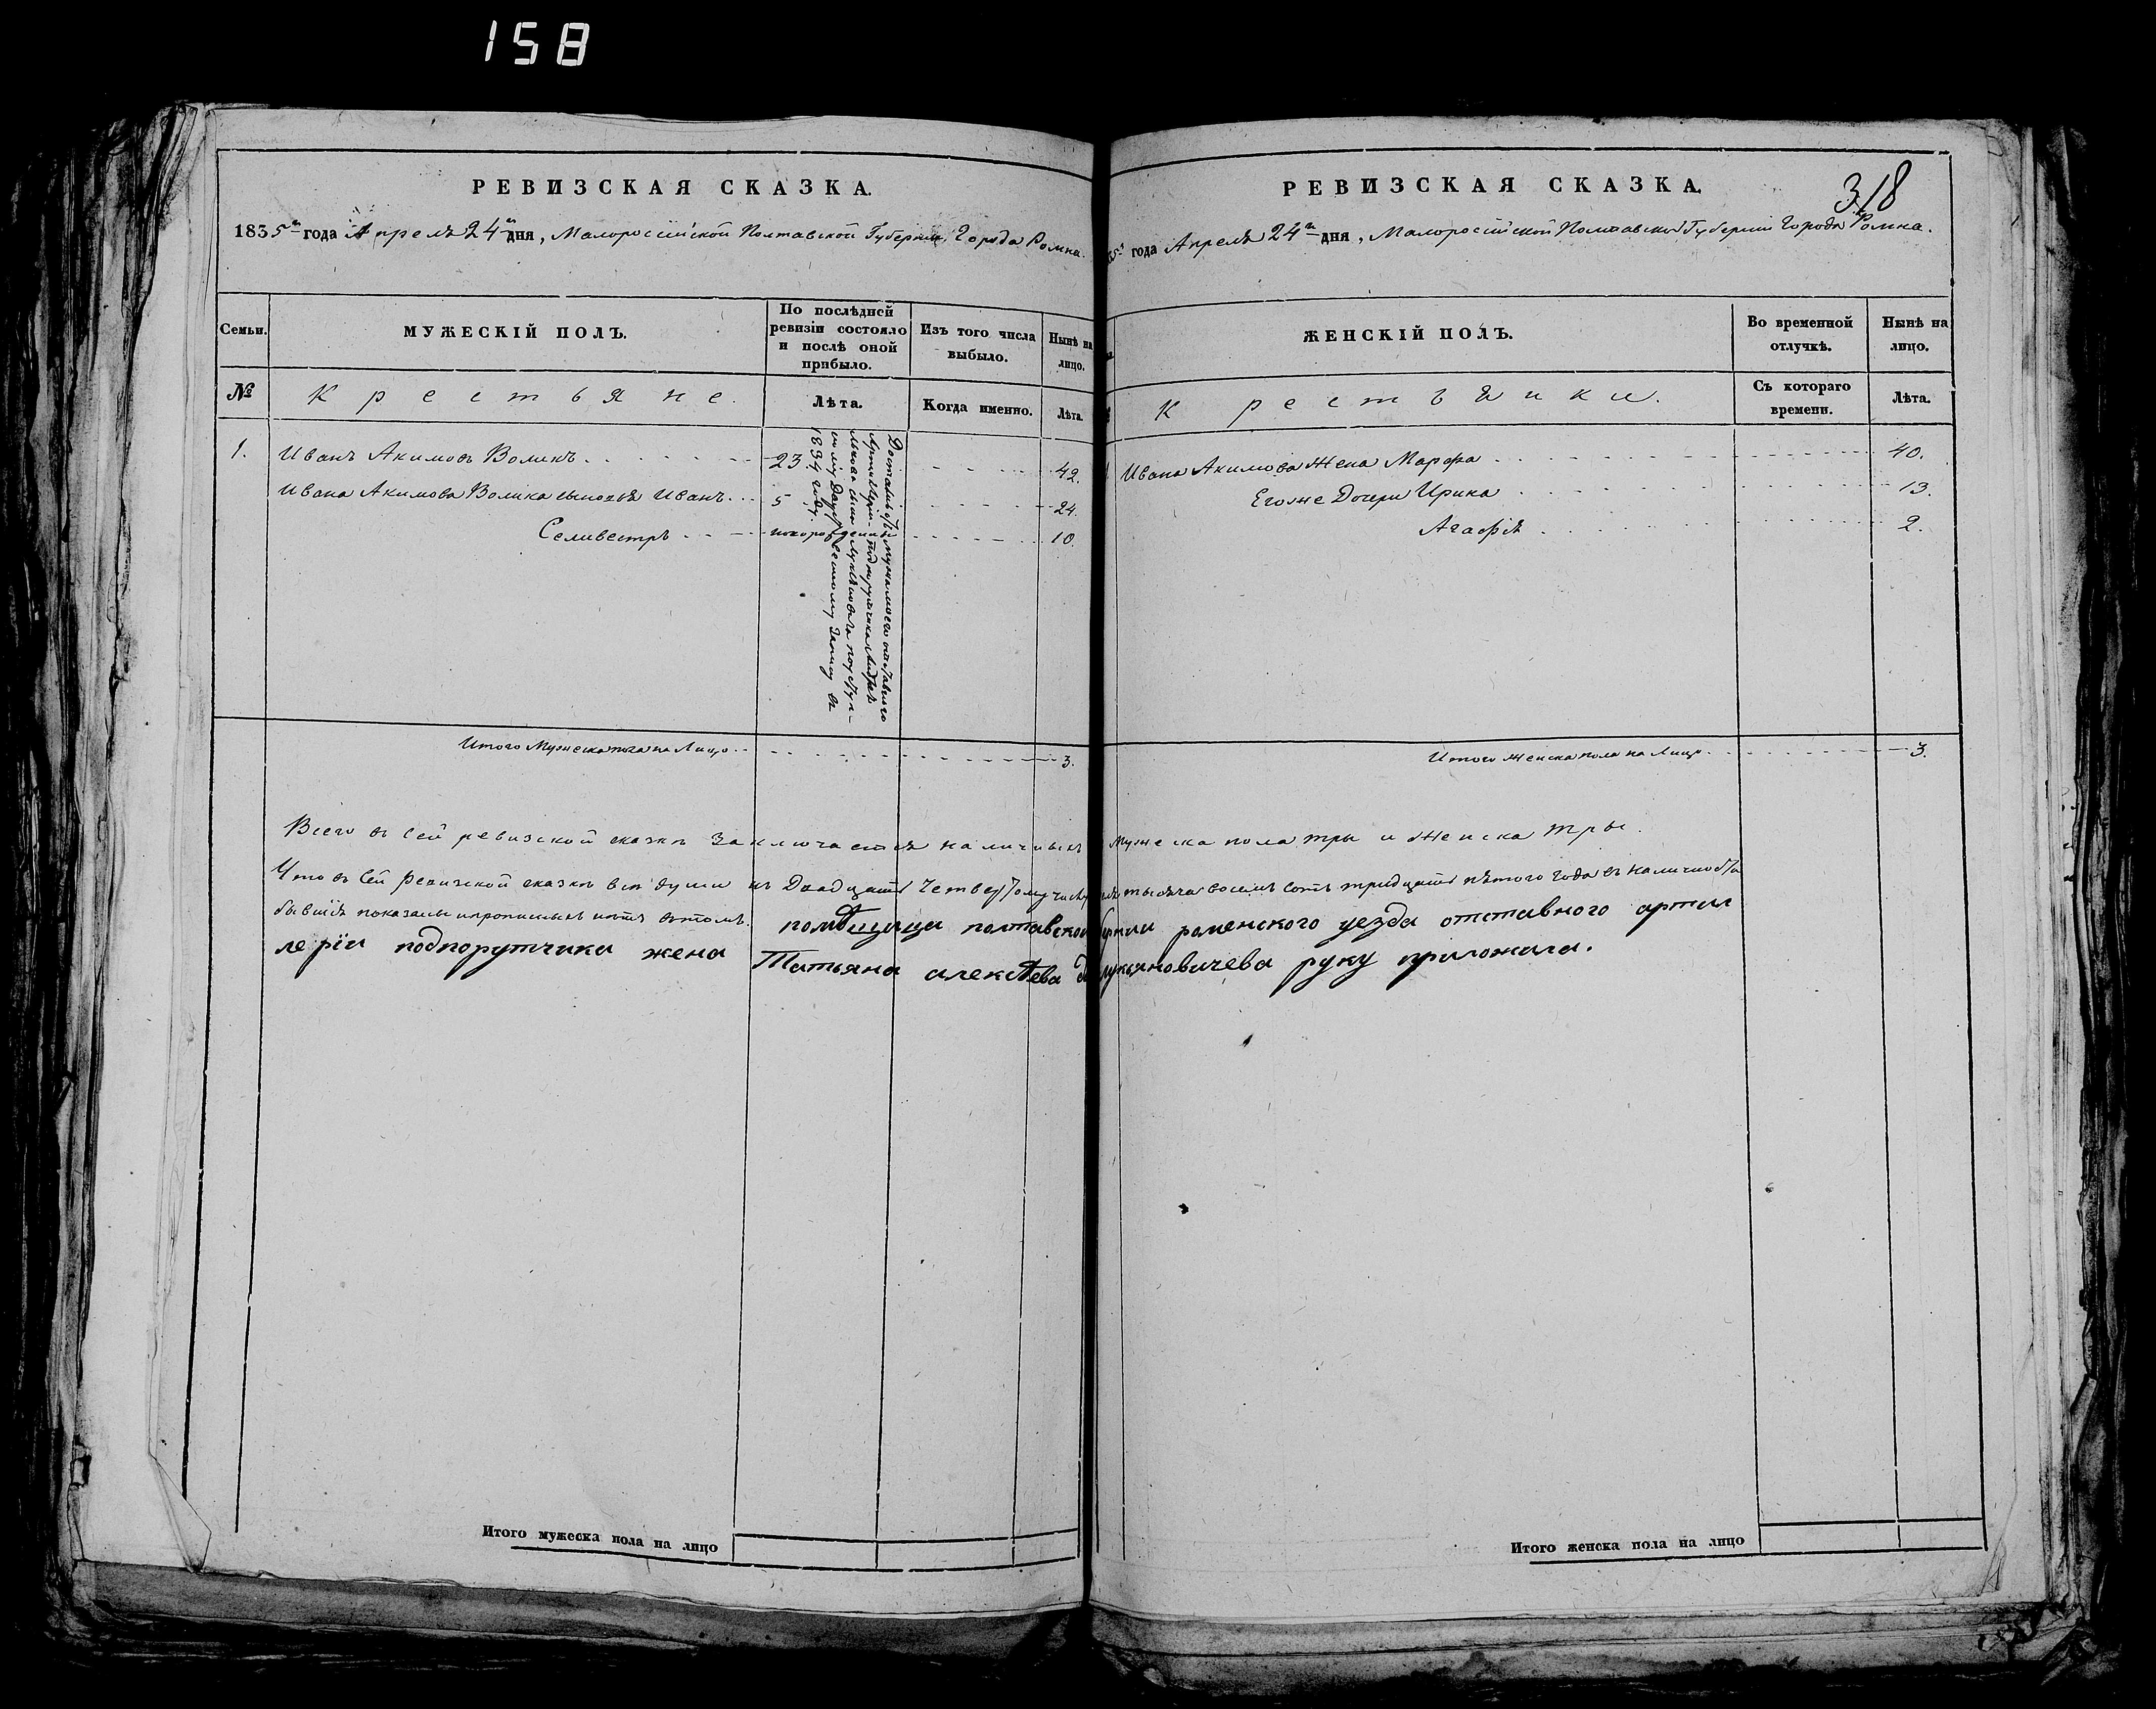 158
РЕВИЗСКАЯ СКАЗКА.
1835го года Апреля 24го дня, Малороссийской Полтавской Губернии, Города Ромна.
Семьи.
МУЖЕСКІЙ ПОЛЪ.
По послѣдней
ревизіи состояло
и послѣ оной
прибыло.
Изъ того числа
выбыло.
Нынѣ на
лицо.
№
Крестьяне.
Лѣта.
Когда именно.
Лѣта.
1. Иванъ Акимовъ Воликъ 23 42.
Ивана Акимова Волика сыновья Иванъ 5 24.
Селивестръ новорожденный 10.
Достались отъ мужа моего отставнаго
Артиллеріи подпорутчика Андрея
сына Лукяновича по ступ-
дарственному запису въ
1834 году.
Итого Мужеска пола на Лицо 3.
318
РЕВИЗСКАЯ СКАЗКА.
года Апреля 24го дня, Малоросийской Полтавской Губернии Города Ромна.
ЖЕНСКІЙ ПОЛЪ.
Во временной
отлучкѣ.
Нынѣ на
лицо.
Крестьянки.
Съ котораго
времени.
Лѣта.
Ивана Акимова Жена Марфа 40.
Егоже Дочери Ирина 13.
Агафія 2.
Итого женска пола на Лицо 3.
Всего въ сей ревизской сказкѣ Заключается наличныхъ мужеска пола три и Женска три.
Что въ Сей Ревизской сказкѣ всѣ души къ Двадцать Четвертому числу тысяча восемь сотъ тридцать пятого года въ наличности
бывшія показаны и прописныхъ нѣтъ въ томъ. помѣщица полтавской губернии роменского уезда отставного артил
леріи подпорутчика жена Татьяна алексѣева лукьяновичева руку приложила.
Итого мужеска пола на лицо
Итого женска пола на лицо